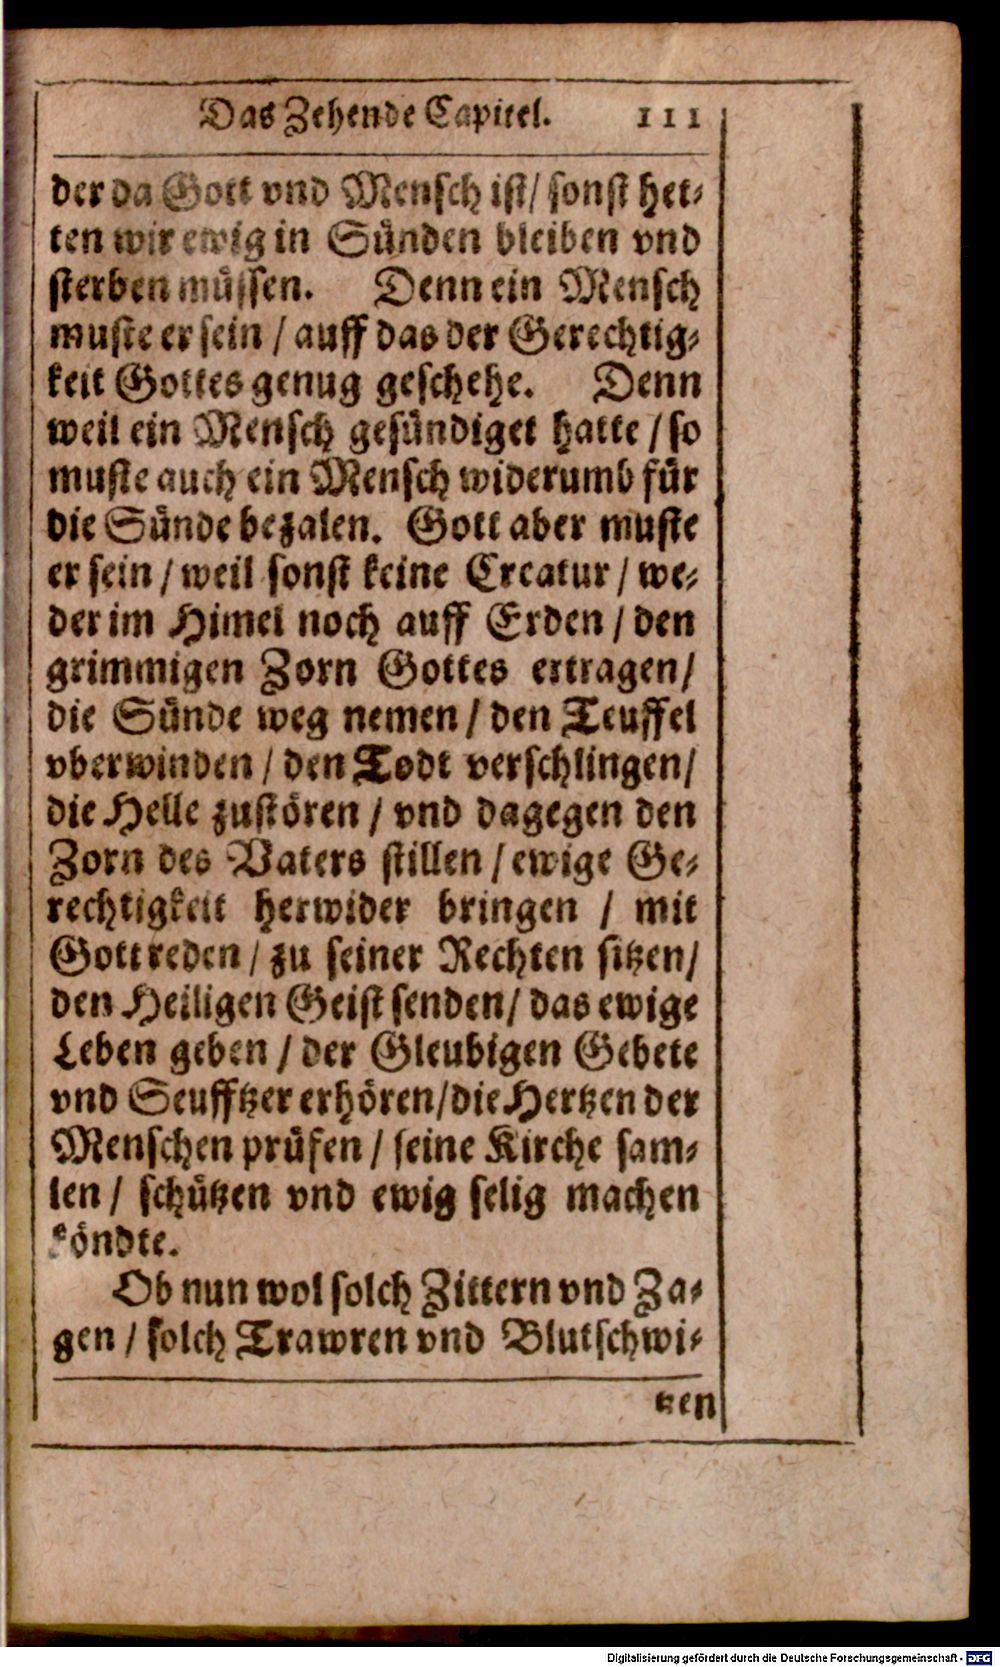 Das Zehende Capitel. 111
der da Gott vnd Mensch ist/ sonst het-
ten wir ewig in Sünden bleiben vnd
sterben müssen. Denn ein Mensch
muste er sein / auff das der Gerechtig-
keit Gottes genug geschehe. Denn
weil ein Mensch gesündiget hatte / so
muste auch ein Mensch widerumb für
die Sünde bezalen. Gott aber muste
er sein / weil sonst keine Creatur / we-
der im Himel noch auff Erden / den
grimmigen Zorn Gottes ertragen/
die Sünde weg nemen / den Teuffel
vberwinden / den Todt verschlingen/
die Helle zustören / vnd dagegen den
Zorn des Vaters stillen / ewige Ge-
rechtigkeit herwider bringen / mit
Gott reden / zu seiner Rechten sitzen/
den Heiligen Geist senden/ das ewige
Leben geben / der Gleubigen Gebete
vnd Seufftzer erhören/die Hertzen der
Menschen prüfen / seine Kirche sam-
len / schützen vnd ewig selig machen
köndte.
Ob nun wol solch Zittern vnd Za-
gen / solch Trawren vnd Blutschwi-
tzen
Digitalisierung gefördert durch die Deutsche Forschungsgemeinschaft - DFG